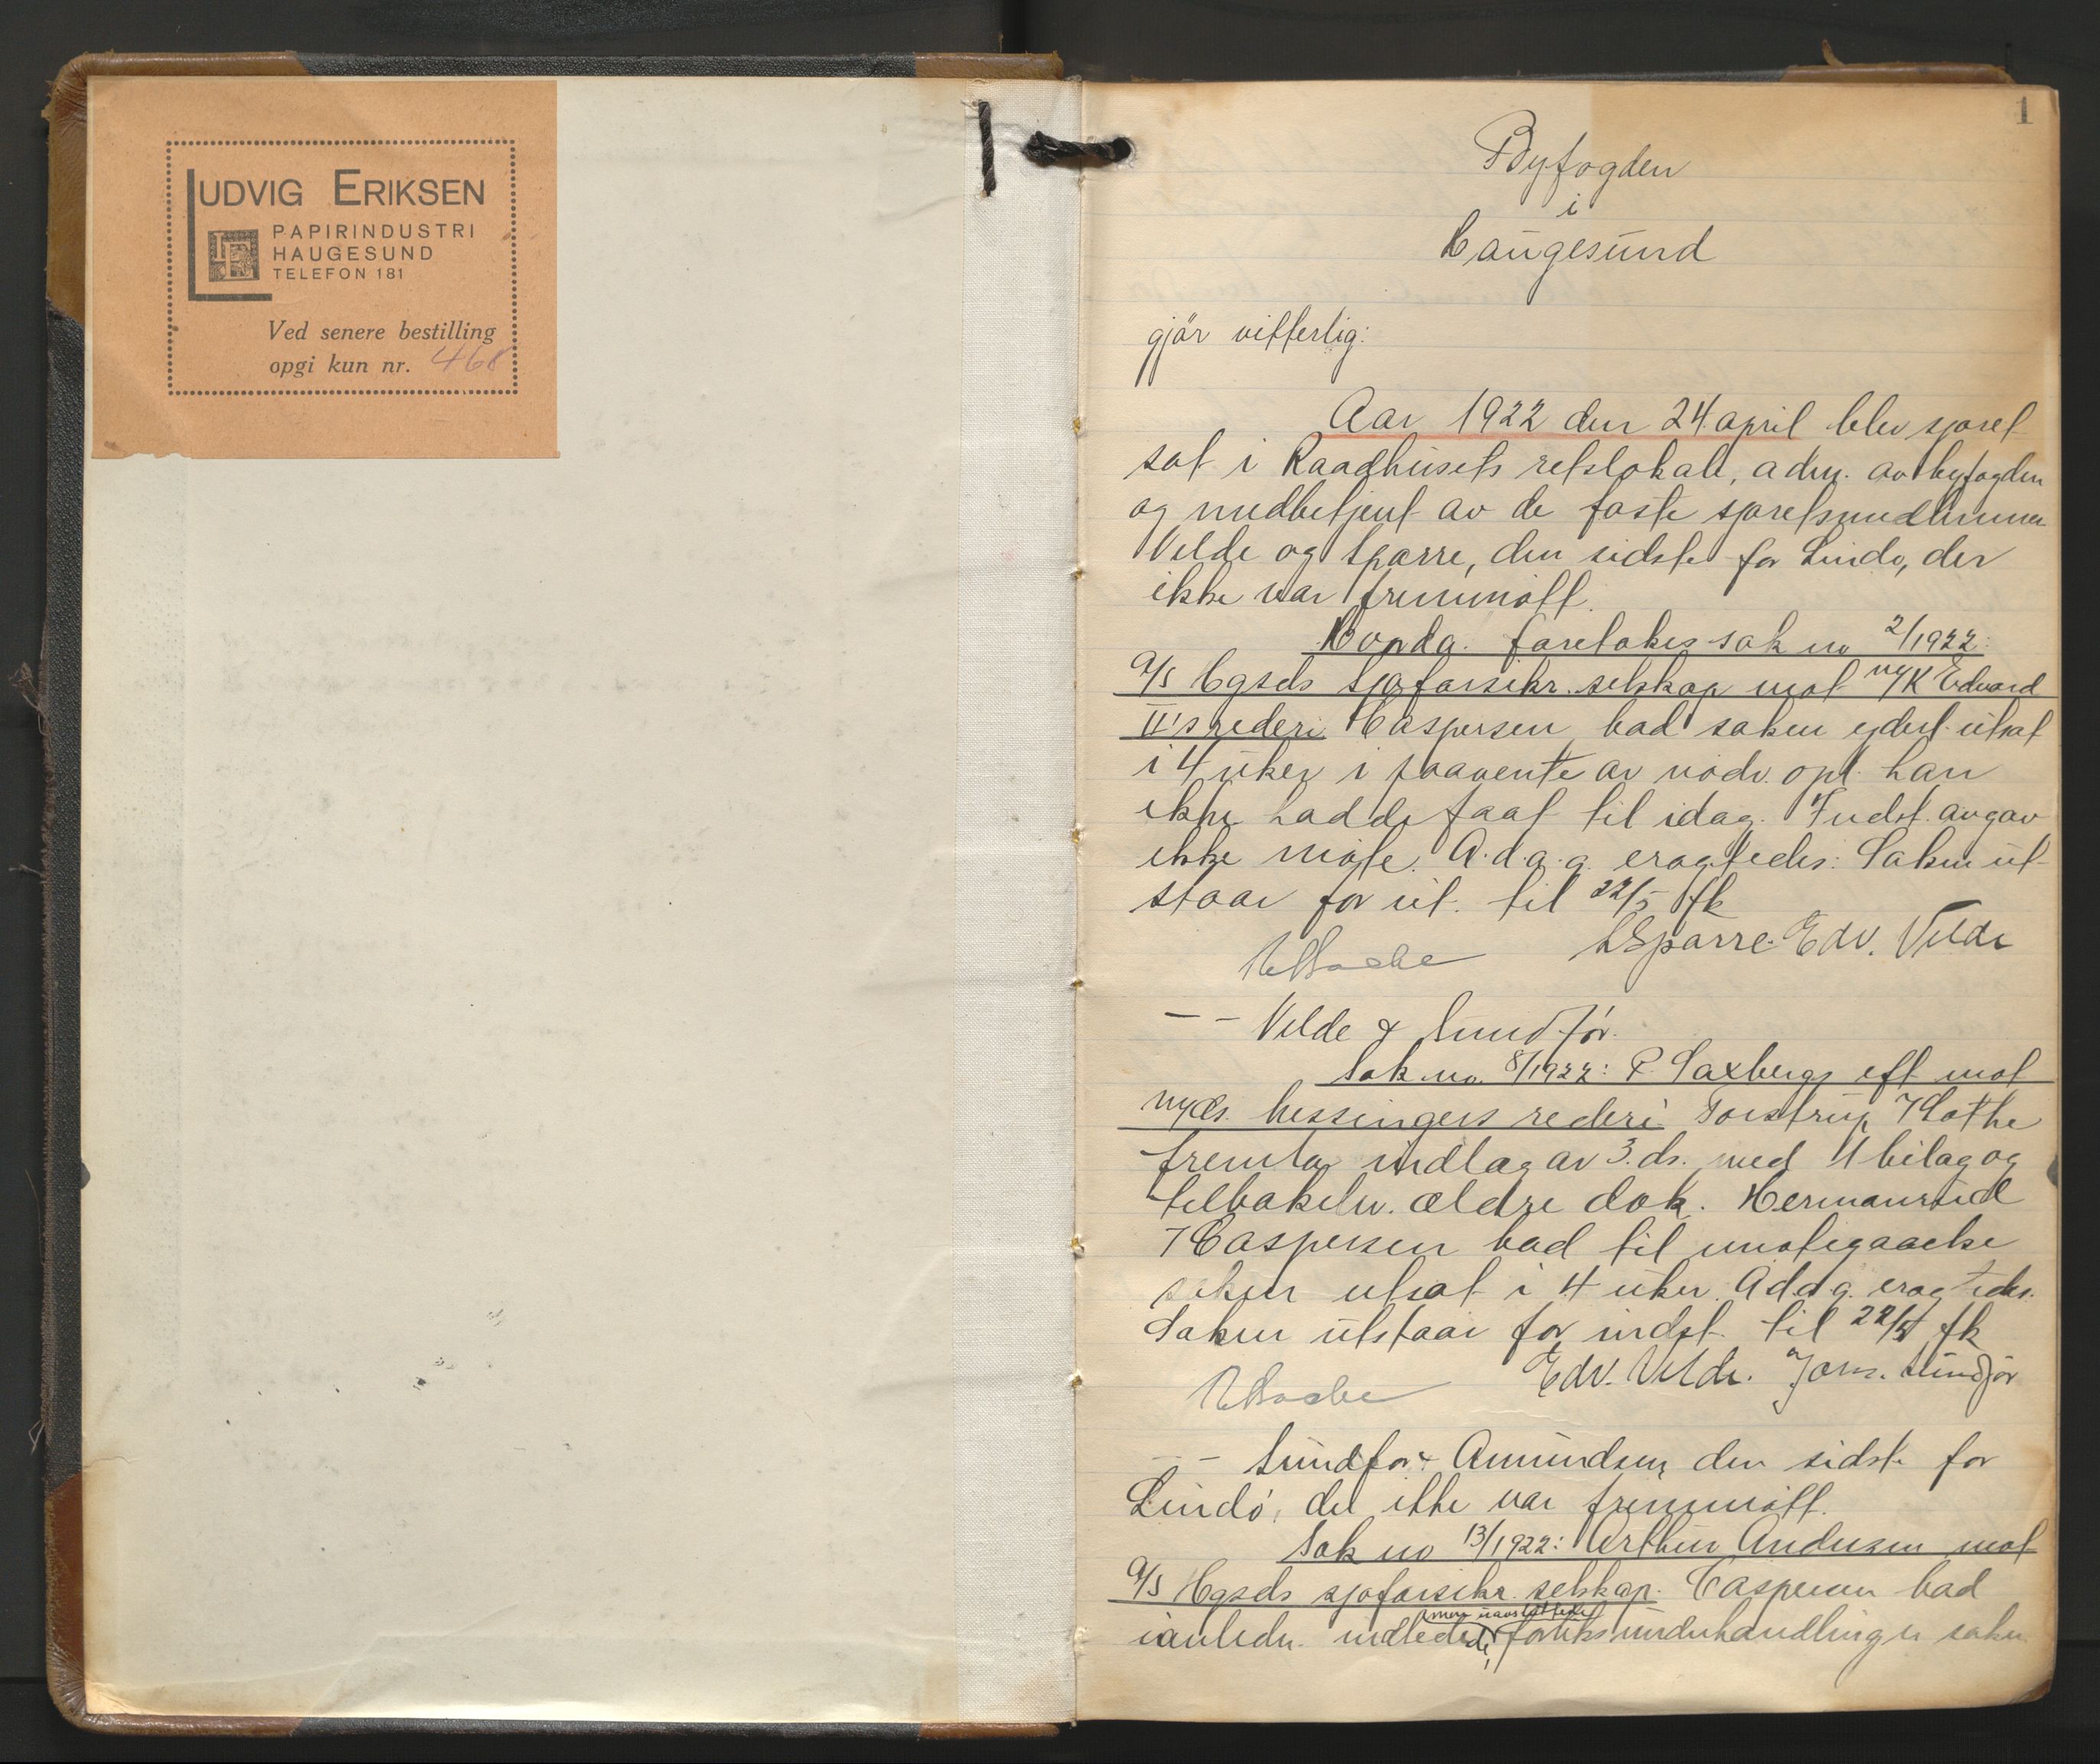 LUDVIG ERIKSEN
PAPIRINDUSTRI
HAUGESUND
TELEFON 181
Ved senere bestilling
opgi kun nr. 468
1
Byfogden
i
Haugesund
gjör vitterlig:
Aar 1922 den 24 april blev sjøret
sat i Raadhusets retslokale, adm. av byfogden
og medbetjent av de faste sjøretsmedlemmer
Velde og Sparre, den sidste for Lindø, der
ikke var fremmøtt.
foretokes sak no 2/1922:
A/S Hgsds Sjøforsikr. selskap mot m/K Edvard
II's rederi. Caspersen bad saken yderl. utsat
i 4 uker i paavente av nødv. opl. han
ikke hadde faat til idag. Indst. avgav
ikke møte. A.d.a.g. eragtedes: Saken ut-
staar for cit. til 22/5 fk
Sparre. Edv. Velde
- - Velde & Sundfør.
Sak no. 8/1922: P. Saxbergs eft mot
rederi. Torstrup / Gothe
fremla indlæg av 3. ds. med 4 bilag og
tilbakelev. ældre dok. Hermansrud
/ Caspersen bad til imøtegaaelse
saken utsat i 4 uker. A.d.a.g. eragtedes.
Saken utstaar for indst. til 22/5 fk
Edv. Velde. Johs. Sundför
- - Sundfør & Amundsen, den sidste for
Lindö, der ikke var fremmøtt.
Sak no 13/1922: Arthur Andersen mot
A/S Hgsds sjøforsikr. selskap. Caspersen bad
men uavsluttede
ianledn. indledede, forliksunderhandlinger saken